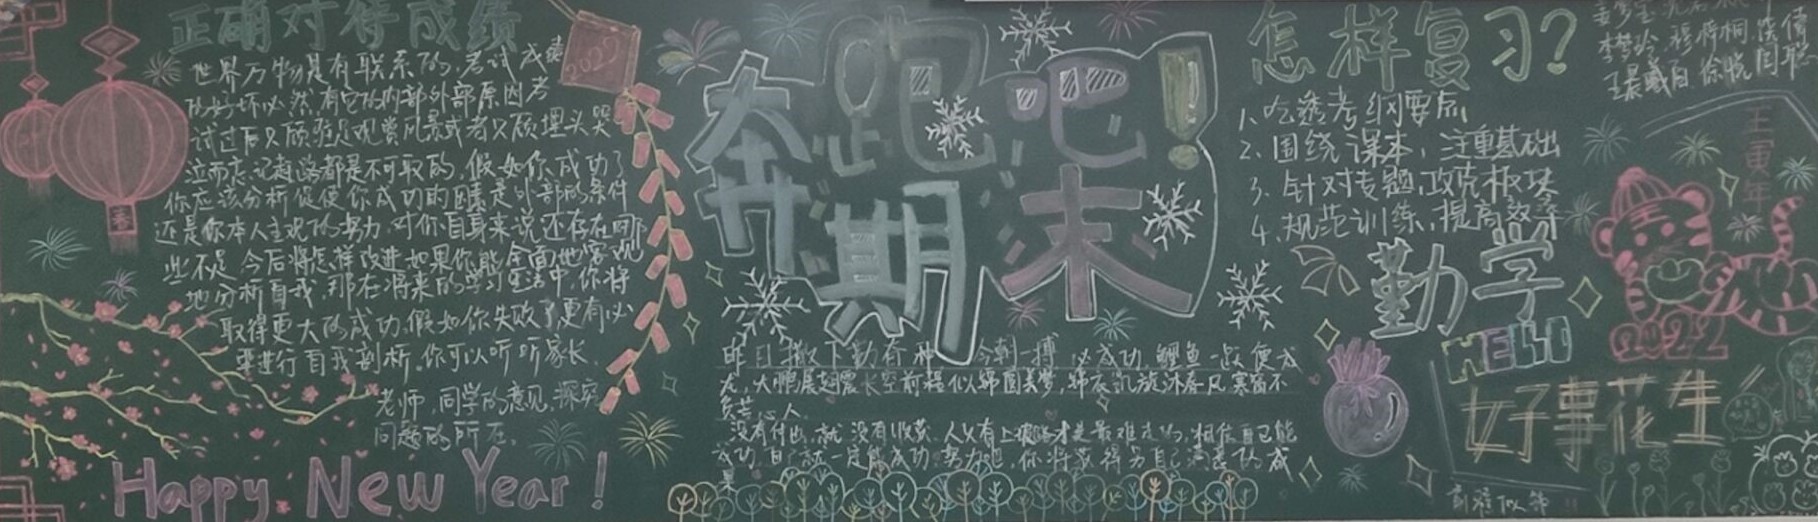 正确对待成绩
世界万物是有联系的,考试成绩
的好坏必然有它的内部外部原因考
试过后只顾驻足观赏风景或者只顾埋头哭
泣而忘记赶路都是不可取的,假如你成功了
你应该分析促使你成功的因素是外部的条件
还是你本人主观的努力,对你自身来说还存在哪
些不足,今后将怎样改进如果你能全面地客观
地分析自我,那在将来的学习生活中,你将
取得更大的成功.假如你失败了更有必
要进行自我剖析,你可以听听家长、
老师,同学的意见,深究
问题的所在。
Happy New Year!
2022
春
奔跑吧!
期末
昨日撒下勤奋种 今朝一搏必成功,鲤鱼一跃便成
龙,大鹏展翅震长空前程似锦圆美梦,锦衣凯旋沐春风寒窗不
负苦心人.
没有付出,就没有收获,人只有上坡路才是最难走的,相信自己能
成功,自己就一定能成功,努力吧,你将获得另自己满意的成
果
怎样复习?
1、吃透考纲要点
2、围绕课本,注重基础
3、针对专题,攻克板块
4、规范训练,提高效率
勤学
HELLO
好事花生
壬寅年
2022
前程似锦